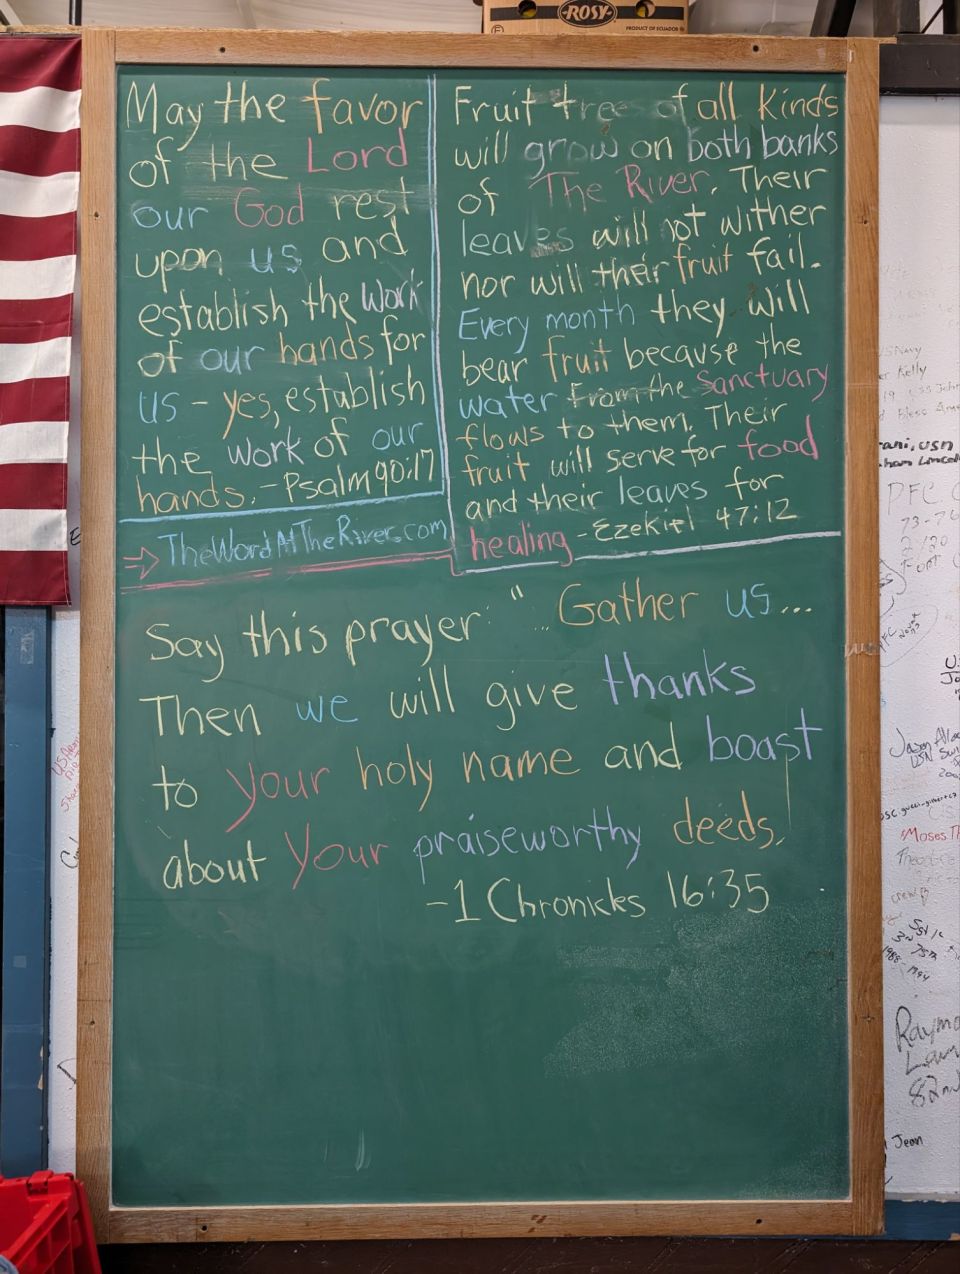 ROSY
PRODUCT OF ECUADOR
May the favor
of the Lord
our God rest
upon us and
establish the work
of our hands for
us - yes, establish
the work of our
hands. - Psalm 90:17
TheWordAtTheRiver.com
Fruit trees of all kinds
will grow on both banks
of The River. Their
leaves will not wither
nor will their fruit fail.
Every month they will
bear fruit because the
water from the Sanctuary
flows to them. Their
fruit will serve for food
and their leaves for
healing - Ezekiel 47:12
Say this prayer: "... Gather us...
Then we will give thanks
to Your holy name and boast
about Your praiseworthy deeds.
- 1 Chronicles 16:35
US Navy
Kelly
PFC
73-76
Jason
USN
Moses
Theodore
1988-1994
82nd
Jean